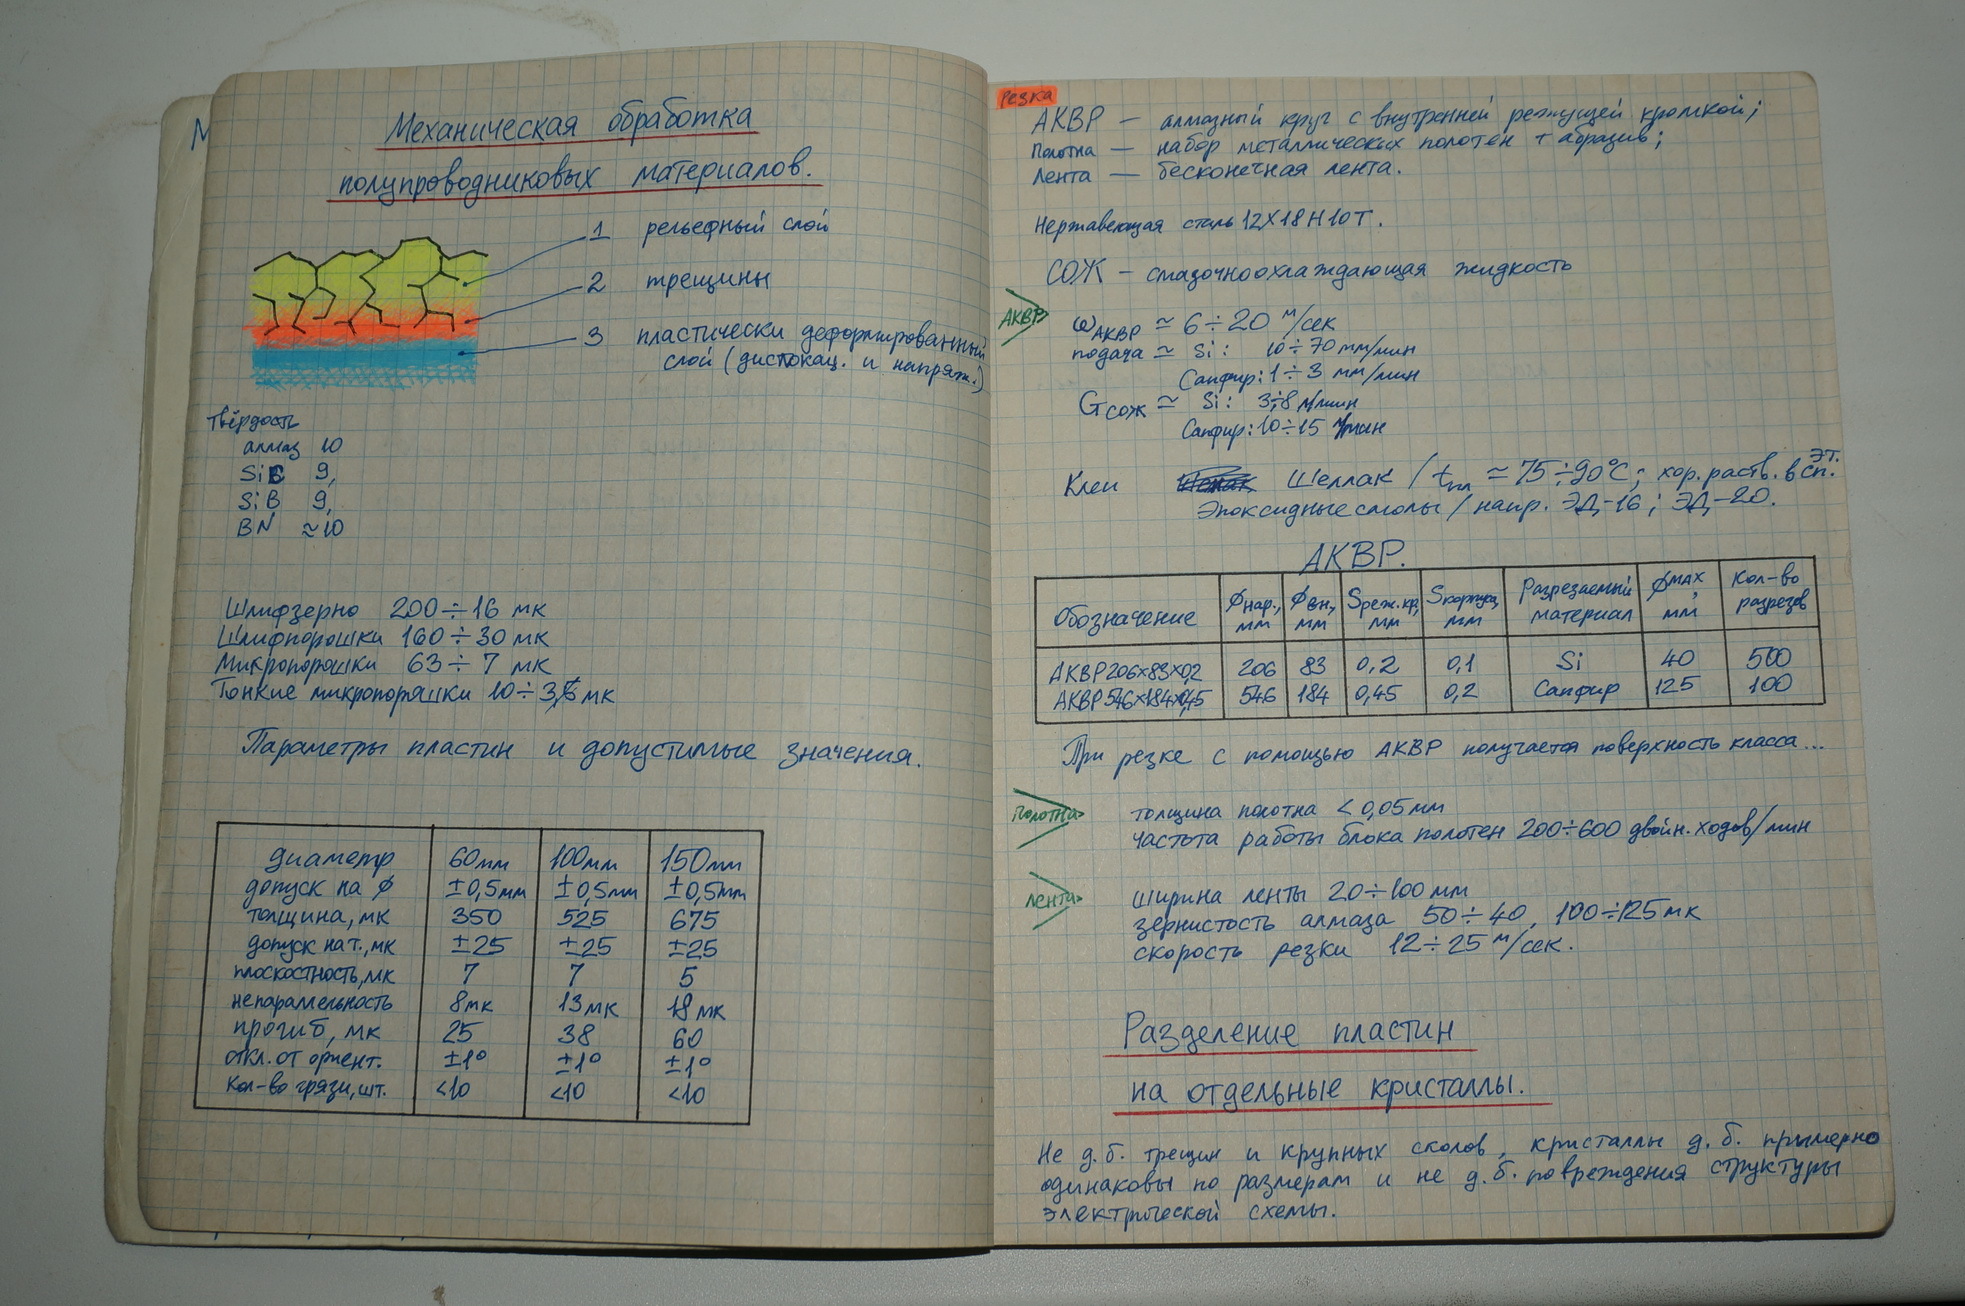 М
Механическая обработка
полупроводниковых материалов.
1 рельефный слой
2 трещины
3 пластически деформированный
слой (дислокац. и напряж.)
Твёрдость
алмаз 10
SiC 9,
SiB 9,
BN ≈10
Шлифзерно 200÷16 мк
Шлифпорошки 160÷30 мк
Микропорошки 63÷7 мк
Тонкие микропорошки 10÷3,5 мк
Параметры пластин и допустимые значения.
диаметр 60мм 100мм 150мм
допуск на ϕ ±0,5мм ±0,5мм ±0,5мм
толщина, мк 350 525 675
допуск на т., мк ±25 ±25 ±25
плоскостность, мк 7 7 5
непараллельность 8мк 13мк 18мк
прогиб, мк 25 38 60
откл. от ориент. ±1° ±1° ±1°
кол-во грязи, шт. <10 <10 <10
Резка
АКВР — алмазный круг с внутренней режущей кромкой;
Полотна — набор металлических полотен + абразив;
Лента — бесконечная лента.
Нержавеющая сталь 12Х18Н10Т.
СОЖ – смазочноохлаждающая жидкость
АКВР
ωАКВР ≃ 6÷20 м/сек
подача ≃ Si: 10÷70 мм/мин
Сапфир: 1÷3 мм/мин
Gсож ≃ Si: 3÷8 л/мин
Сапфир: 10÷15 л/мин
Клеи Шеллак / tпл ≃ 75÷90°C; хор. раств. в эт. сп.
Эпоксидные смолы / напр. ЭД-16; ЭД-20.
АКВР.
Обозначение ϕнар., мм ϕвн., мм Sреж.кр, мм Sкорпуса, мм Разрезаемый материал ϕмах, мм Кол-во разрезов
АКВР206×83×0,2 206 83 0,2 0,1 Si 40 500
АКВР546×184×0,45 546 184 0,45 0,2 Сапфир 125 100
При резке с помощью АКВР получается поверхность класса...
Полотна
толщина полотна < 0,05мм
частота работы блока полотен 200÷600 двойн. ходов/мин
Лента
ширина ленты 20÷100мм
зернистость алмаза 50÷40, 100÷125мк
скорость резки 12÷25 м/сек.
Разделение пластин
на отдельные кристаллы.
Не д.б. трещин и крупных сколов, кристаллы д.б. примерно
одинаковы по размерам и не д.б. повреждения структуры
электрической схемы.